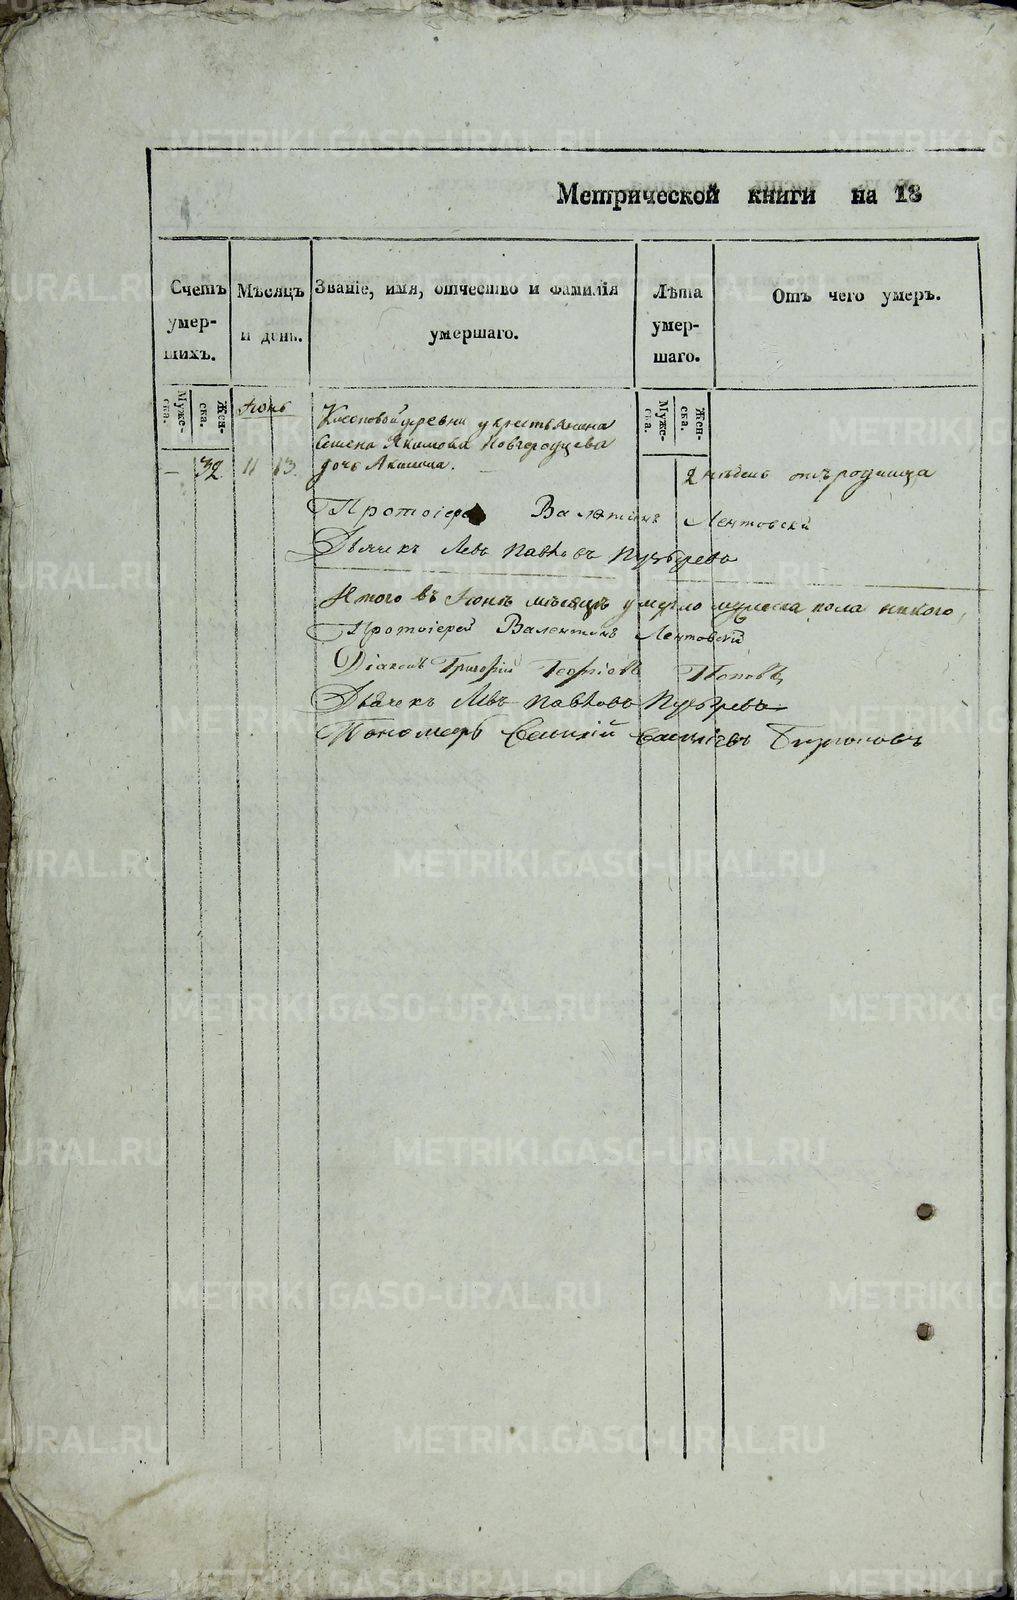 Метрической книги на 18
Счетъ умер- шихъ.
Мѣсяцъ и день.
Званіе, имя, отчество и фамилія умершаго.
Лѣта умер- шаго.
Отъ чего умеръ.
Муже- ска.
Жен- ска.
Муже- ска.
Жен- ска.
Іюнь
деревни у крестьянина
Семена Якимова Новгородцева
32 11 13 дочь Акилина.
2 отъ родимца
Протоіерей Валентинъ Лентовскій
Дьячекъ Левъ Павловъ
Итого въ Іюнѣ мѣсяцѣ умерло мужеска пола никого,
Протоіерей Валентинъ Лентовскій
Діаконъ Григорій Георгіевъ Поповъ
Дьячекъ Левъ Павловъ
Пономарь Василіевъ Бирюковъ
METRIKI.GASO-URAL.RU